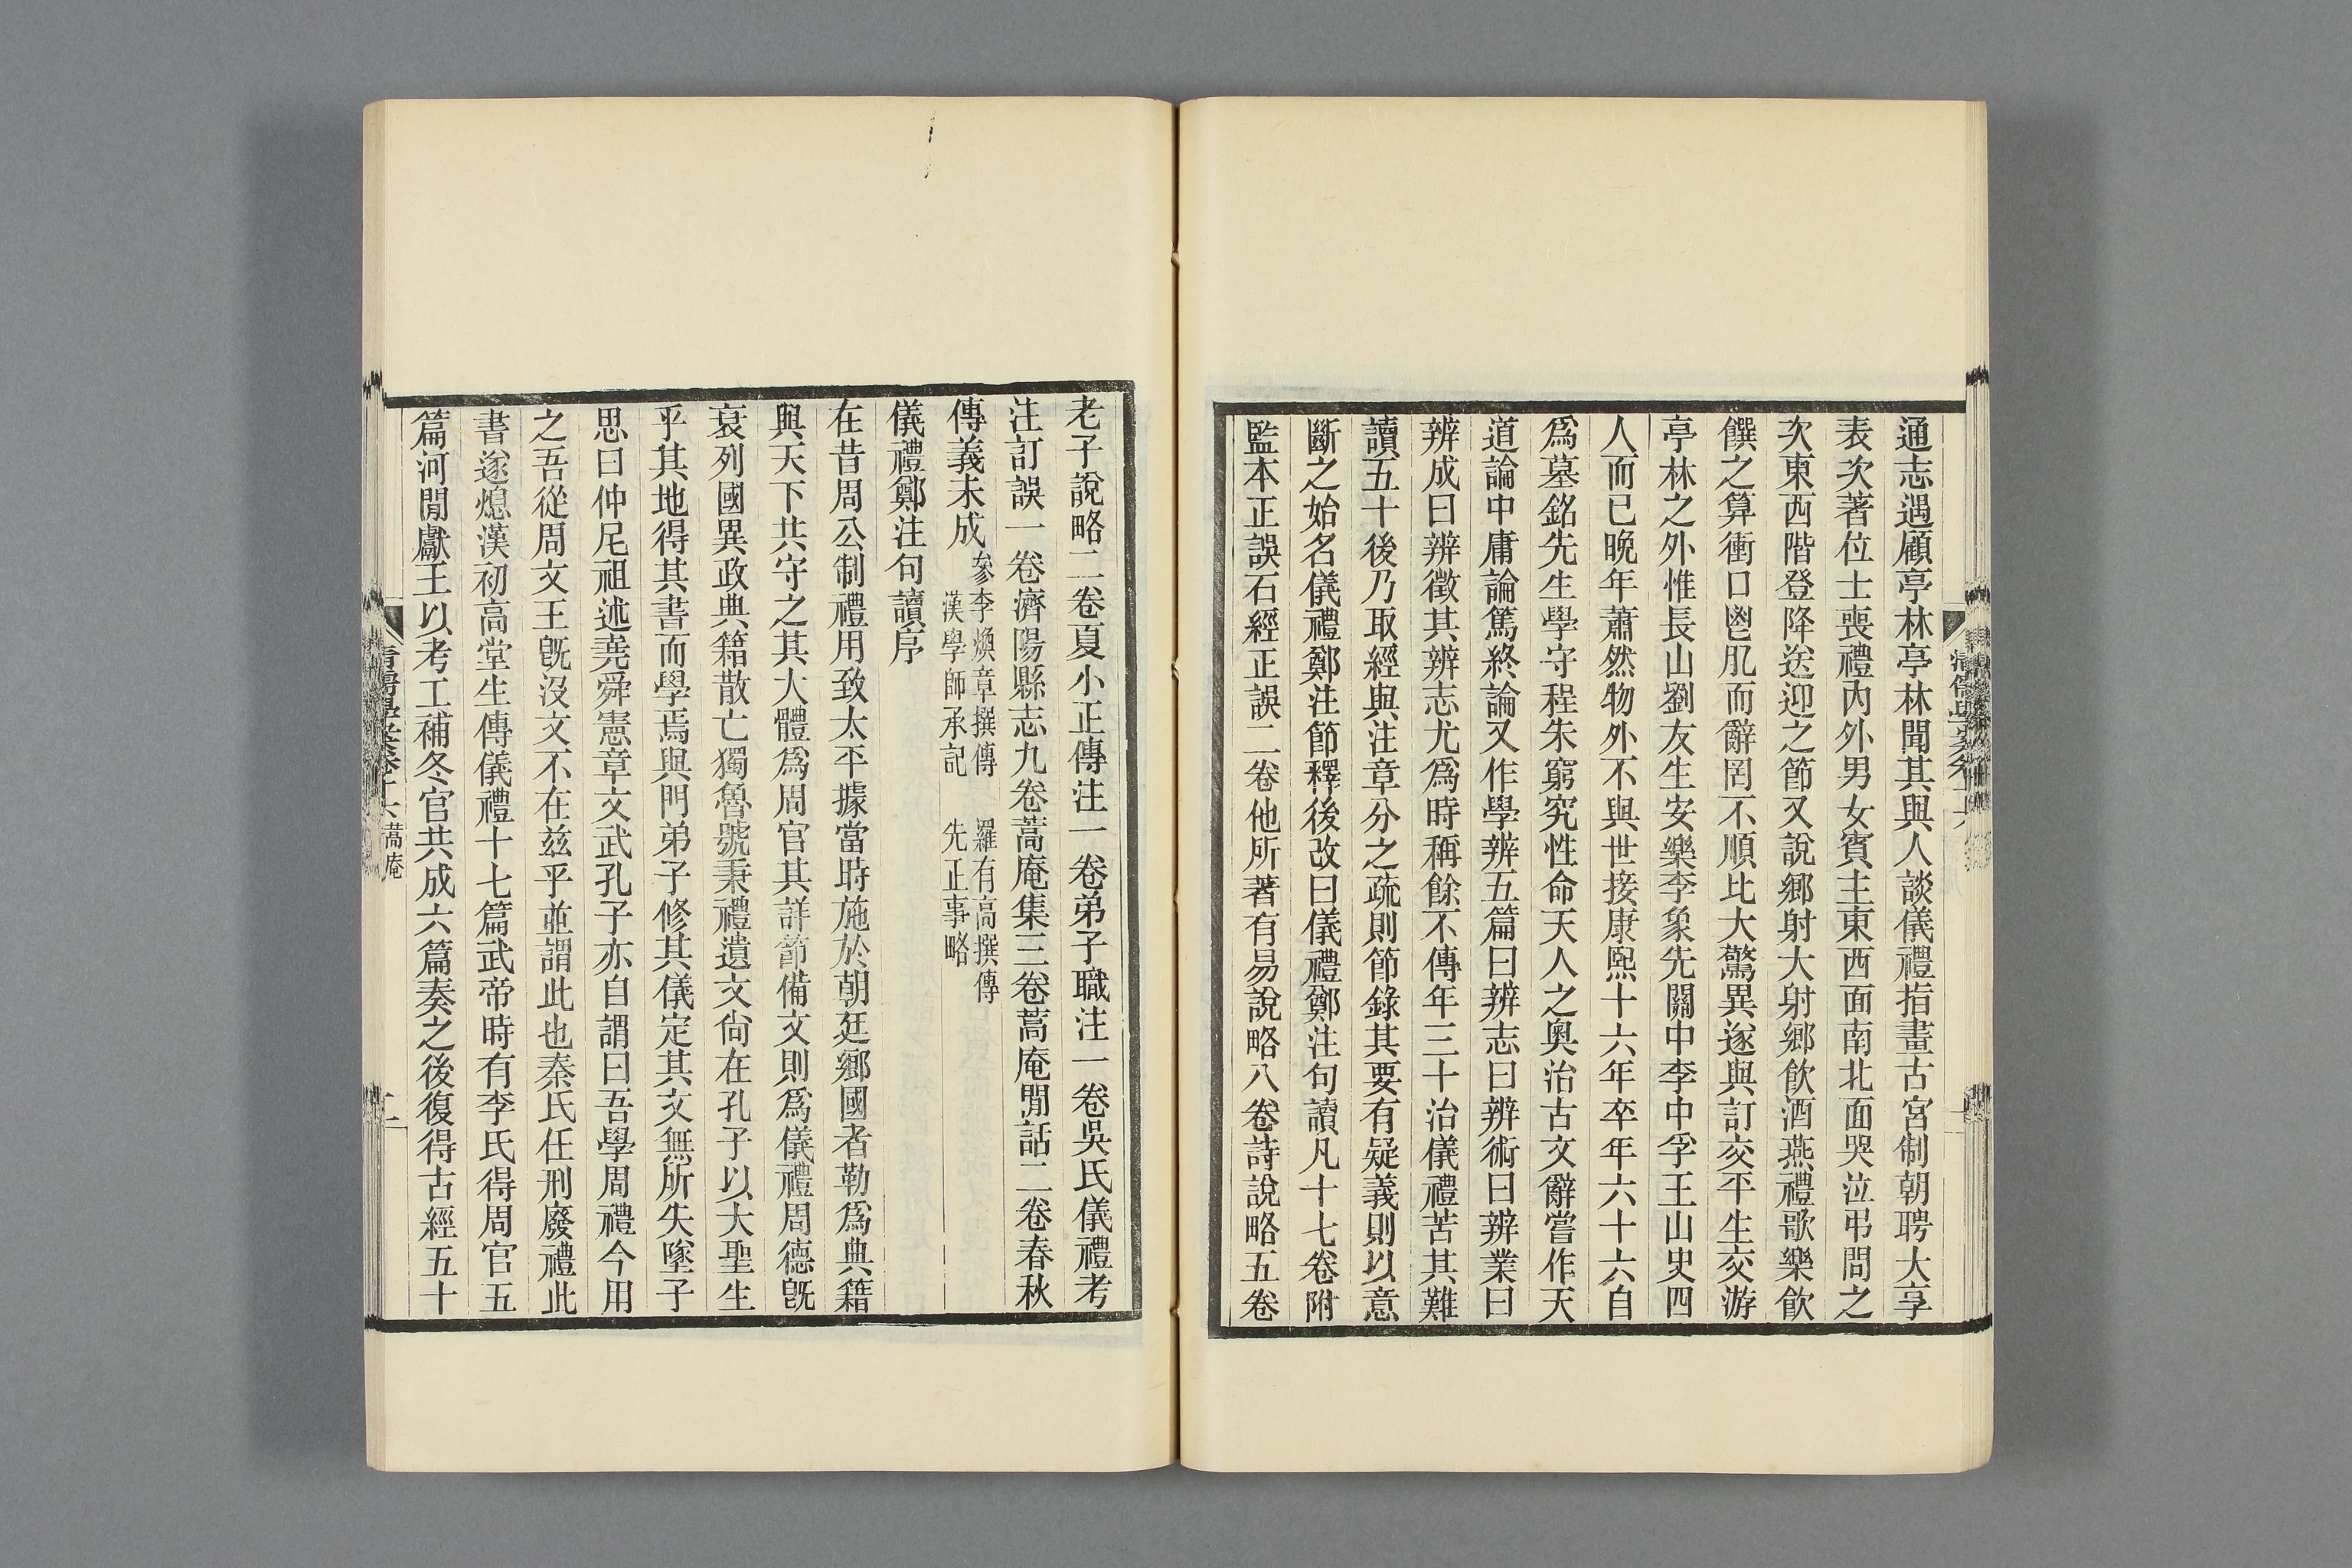 通志遇顧亭林亭林聞其與人談儀禮指畫古宮制朝聘大享
表次著位士喪禮內外男女賓主東西面南北面哭泣弔問之
次東西階登降送迎之節又說鄉射大射鄉飲酒燕禮歌樂飲
饌之算衝口鬯肊而辭罔不順比大驚異遂與訂交平生交游
亭林之外惟長山劉友生安樂李象先關中李中孚王山史四
人而已晚年蕭然物外不與世接康熙十六年卒年六十六自
爲墓銘先生學守程朱窮究性命天人之奧治古文辭嘗作天
道論中庸論篤終論又作學辨五篇曰辨志曰辨術曰辨業曰
辨成曰辨徵其辨志尤爲時稱餘不傳年三十治儀禮苦其難
讀五十後乃取經與注章分之疏則節錄其要有疑義則以意
斷之始名儀禮鄭注節釋後改曰儀禮鄭注句讀凡十七卷附
監本正誤石經正誤二卷他所著有易說略八卷詩說略五卷
老子說略二卷夏小正傳注一卷弟子職注一卷吳氏儀禮考
注訂誤一卷濟陽縣志九卷蒿庵集三卷蒿庵閒話二卷春秋
傳義未成參李煥章撰傳 羅有高撰傳
漢學師承記 先正事略
儀禮鄭注句讀序
在昔周公制禮用致太平據當時施於朝廷鄉國者勒爲典籍
與天下共守之其大體爲周官其詳節備文則爲儀禮周德旣
衰列國異政典籍散亡獨魯號秉禮遺文尙在孔子以大聖生
乎其地得其書而學焉與門弟子修其儀定其文無所失墜子
思曰仲尼祖述堯舜憲章文武孔子亦自謂曰吾學周禮今用
之吾從周文王旣沒文不在茲乎並謂此也秦氏任刑廢禮此
書遂熄漢初高堂生傳儀禮十七篇武帝時有李氏得周官五
篇河閒獻王以考工補冬官共成六篇奏之後復得古經五十
清儒學案卷十六 蒿庵
二